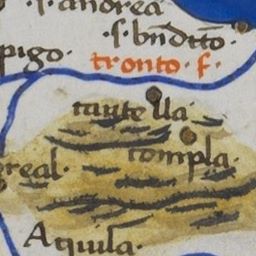 ·s·andrea
·s·bndtto·
pigo·
tronto·f·
tautella·
compla·
real·
Aquila·